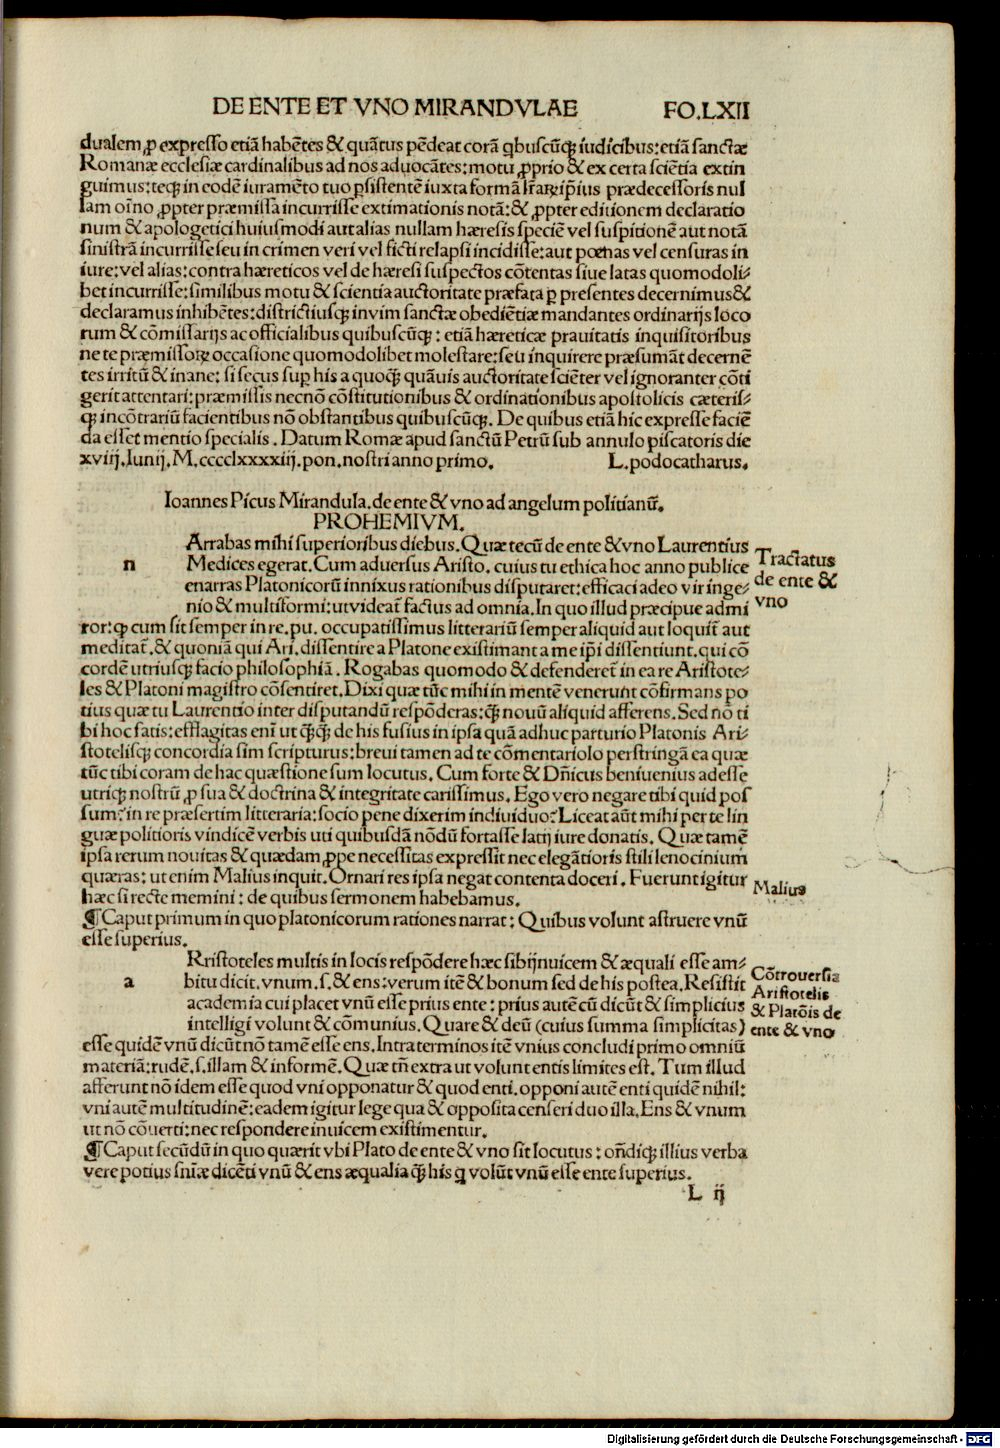 DE ENTE ET VNO MIRANDVLAE FO.LXII
dualem ꝑ expresso etiā habētes & quātus pēdeat corā qbuscūqꝫ iudicibus: etiā sanctæ
Romanæ ecclesiæ cardinalibus ad nos aduocātes: motu ꝓprio & ex certa sciētia extin
guimus: teqꝫ in eodē iuramēto tuo ꝑsistentē iuxta formā ip̄ius prædecessoris nul
lam oīno ꝓpter præmissa incurrisse extimationis notā: & ꝓpter editionem declaratio
num & apologetici huiusmodi aut alias nullam hæresis speciē vel suspitionē aut notā
sinistrā incurrisse seu in crimen veri vel ficti relapsi incidisse: aut pœnas vel censuras in
iure: vel alias: contra hæreticos vel de hæresi suspectos cōtentas siue latas quomodoli⸗
bet incurrisse: similibus motu & scientia auctoritate præfata ꝑ presentes decernimus &
declaramus inhibētes: districtiusqꝫ in vim sanctæ obediētiæ mandantes ordinarijs loco
rum & cōmissarijs ac officialibus quibuscūqꝫ: etiā hæreticæ prauitatis inquisitoribus
ne te præmissoꝝ occasione quomodolibet molestare: seu inquirere præsumāt decernē
tes irritū & inane: si secus suꝑ his a quoqꝫ quāuis auctoritate sciēter vel ignoranter cōti
gerit attentari: præmissis necnō cōstitutionibus & ordinationibus apostolicis cæteris⸗
qꝫ in cōtrariū facientibus nō obstantibus quibuscūqꝫ. De quibus etiā hic expresse faciē
da esset mentio specialis. Datum Romæ apud sanctū Petrū sub annulo piscatoris die
xviij. Iunij. M.cccclxxxxiij. pon. nostri anno primo. L. podocatharus.
Ioannes Picus Mirandula. de ente & vno ad angelum politianū.
PROHEMIVM.
Arrabas mihi superioribus diebus. Quæ tecū de ente & vno Laurentius
n Medices egerat. Cum aduersus Aristo. cuius tu ethica hoc anno publice
enarras Platonicorū innixus rationibus disputaret: efficaci adeo vir inge⸗
nio & multiformi: ut videat̄ factus ad omnia. In quo illud præcipue admi
Tractatus
de ente &
vno
ror: ꝙ cum sit semper in re. pu. occupatissimus litterariū semper aliquid aut loquit̄ aut
meditat̄. & quoniā qui Ari. dissentire a Platone existimant a me ip̄i dissentiunt. qui cō
cordē utriusqꝫ facio philosophiā. Rogabas quomodo & defenderet̄ in ea re Aristote⸗
les & Platoni magistro cōsentiret. Dixi quæ tūc mihi in mentē venerunt cōfirmans po
tius quæ tu Laurentio inter disputandū respōderas: qꝫ̄ nouū aliquid afferens. Sed nō ti
bi hoc satis: efflagitas eni᷑ ut qꝫ̄qꝫ̄ de his fusius in ipsa quā adhuc parturio Platonis Ari⸗
stotelisqꝫ concordia sim scripturus: breui tamen ad te cōmentariolo perstringā ea quæ
tūc tibi coram de hac quæstione sum locutus. Cum forte & Dn̄icus beniuenius adesse
utriqꝫ nostrū ꝓ sua & doctrina & integritate carissimus. Ego vero negare tibi quid pos
sum? in re præsertim litteraria: socio pene dixerim indiuiduo? Liceat aūt mihi per te lin
guæ politioris vindicē verbis uti quibusdā nōdū fortasse latij iure donatis. Quæ tamē
ipsa rerum nouitas & quædam ꝓpe necessitas expressit nec elegātioris stili lenocinium
quæras: ut enim Malius inquit. Ornari res ipsa negat contenta doceri. Fuerunt igitur
Malius
hæc si recte memini: de quibus sermonem habebamus.
¶ Caput primum in quo platonicorum rationes narrat: Quibus volunt astruere vnū
esse superius.
Rristoteles multis in locis respōdere hæc sibijnuicem & æquali esse am⸗
a bitu dicit. vnum. s. & ens: verum itē & bonum sed de his postea. Resistit
academia cui placet vnū esse prius ente: prius autē cū dicūt & simplicius
intelligi volunt & cōmunius. Quare & deū (cuius summa simplicitas)
Cōtrouersia
Aristotelis
& Platōis de
ente & vno
esse quidē vnū dicūt nō tamē esse ens. Intra terminos itē vnius concludi primo omniū
materiā: rudē. s. illam & informē. Quæ tn̄ extra ut volunt entis limites est. Tum illud
afferunt nō idem esse quod vni opponatur & quod enti. opponi autē enti quidē nihil:
vni autē multitudinē: eadem igitur lege qua & opposita censeri duo illa. Ens & vnum
ut nō cōuerti: nec respondere inuicem existimentur.
¶ Caput secūdū in quo quærit vbi Plato de ente & vno sit locutus: on̄diqꝫ illius verba
vere potius sn̄iæ dicēti vnū & ens æqualia qꝫ̄ his q volūt vnū esse ente superius.
L ij
Digitalisierung gefördert durch die Deutsche Forschungsgemeinschaft - DFG